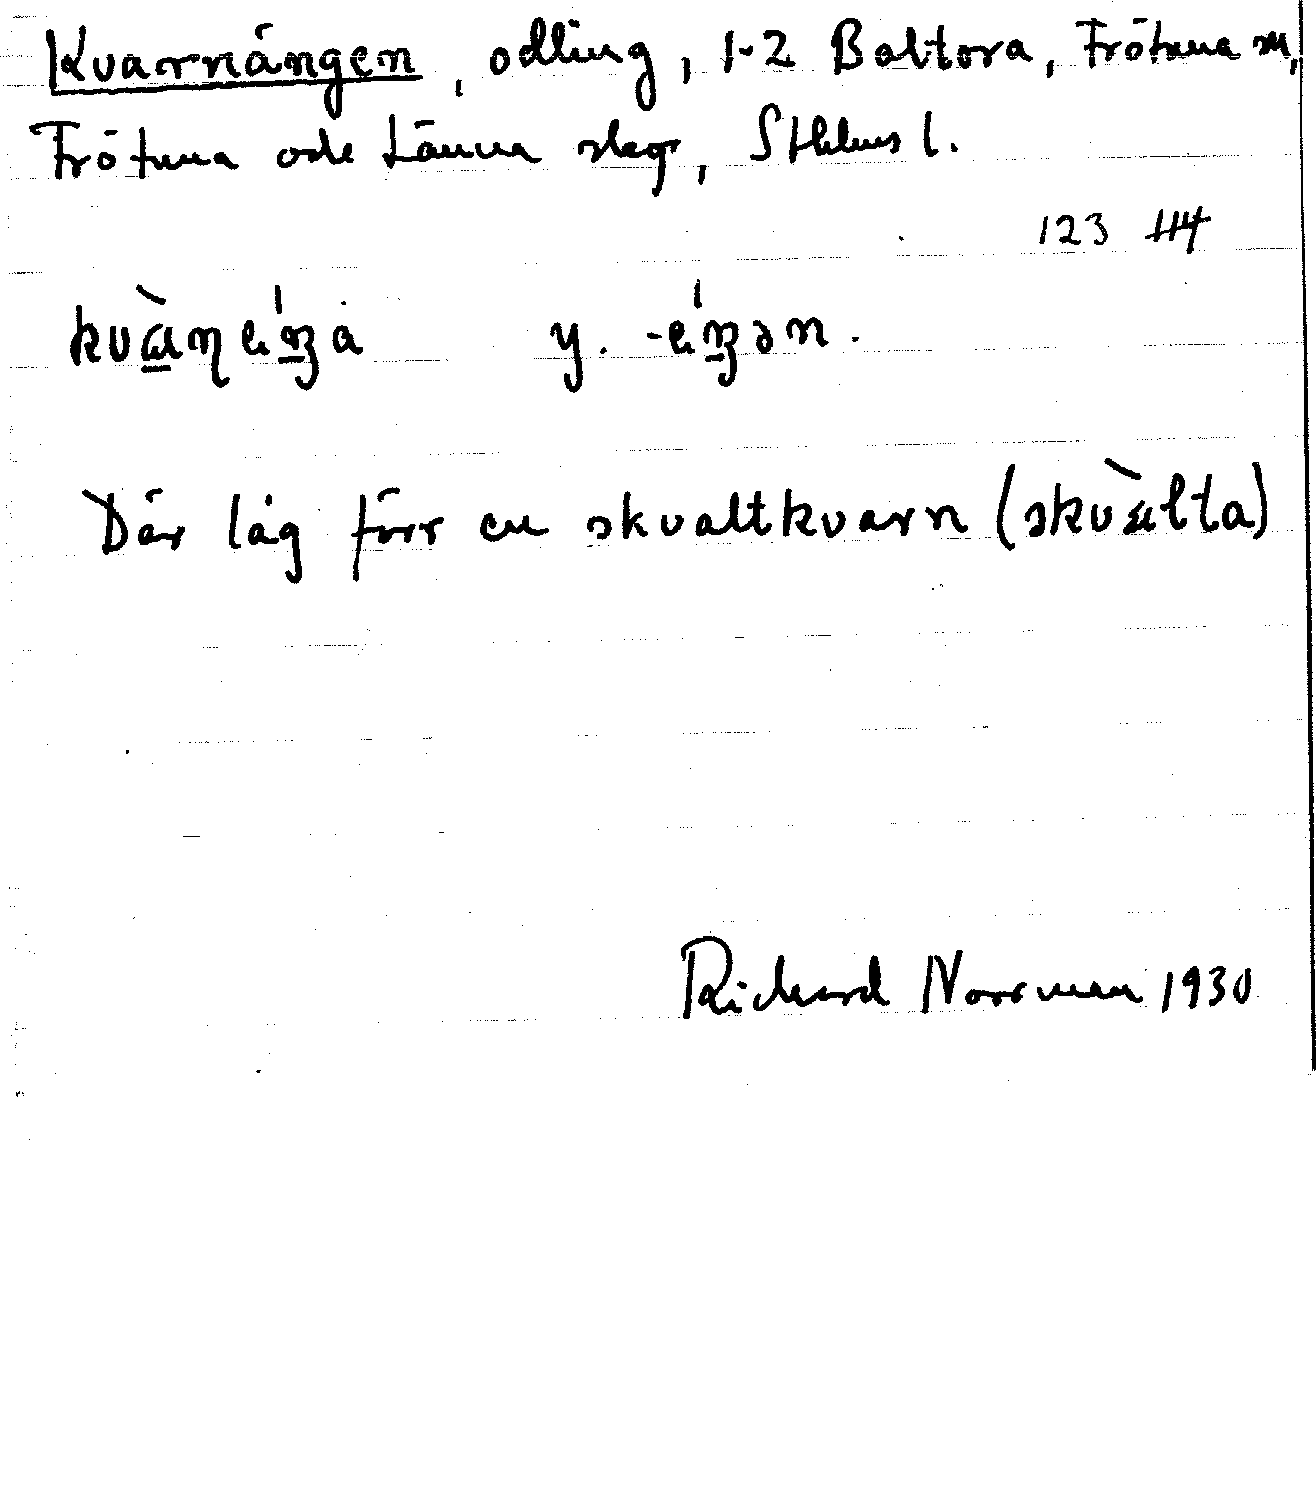 Kvarnängen, odling, 1-2 Baltora, Frötuna sn,
Frötuna och Länna skg, Sthlms l.
123
Där låg förr en skvaltkvarn (skvalta)
Richard Norrman 1930